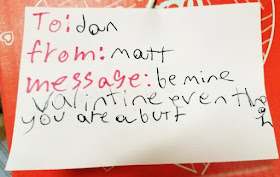 To: dan
from: matt
message: be mine
valintine even thogh
you are a butt